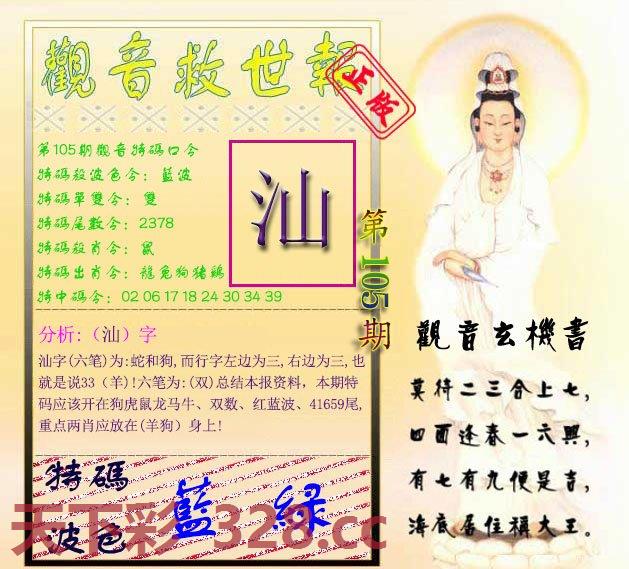 觀音救世報
正版
第105期觀音特碼口令
特碼殺波色令：藍波
特碼單雙令：雙
特碼尾數令：2378
特碼殺肖令：鼠
特碼出肖令：龍兔狗猪鷄
特中碼令：02 06 17 18 24 30 34 39
汕
第105期
分析:（汕）字
汕字(六笔)为:蛇和狗,而行字左边为三,右边为三,也
就是说33（羊)!六笔为:(双)总结本报资料，本期特
码应该开在狗虎鼠龙马牛、双数、红蓝波、41659尾,
重点两肖应放在(羊狗）身上!
特碼
波色
藍 綠
觀音玄機書
莫待二三合上七,
四面逢春一六興,
有七有九便是吉,
海底居住稱大王。
天下彩 328.cc